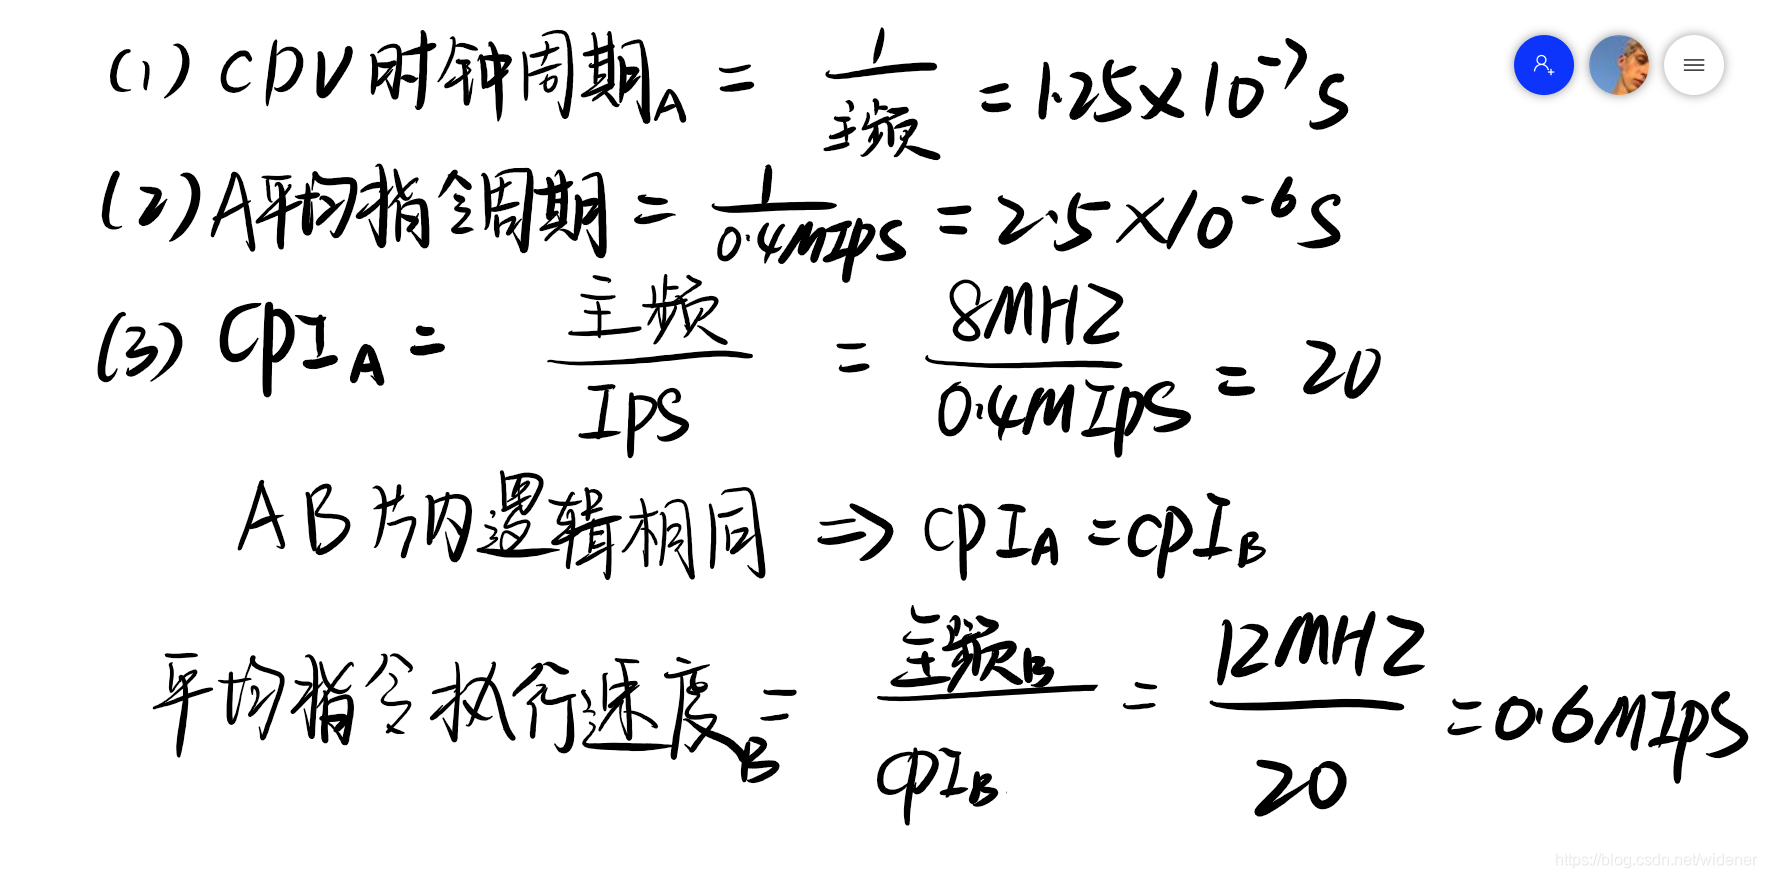 (1) CPU时钟周期A = 1/主频 = 1.25×10⁻⁷S
(2) A平均指令周期 = 1/0.4MIPS = 2.5×10⁻⁶S
(3) CPI_A = 主频/IPS = 8MHZ/0.4MIPS = 20
AB片内逻辑相同 ⇒ CPI_A = CPI_B
平均指令执行速度_B = 主频_B/CPI_B = 12MHZ/20 = 0.6MIPS
https://blog.csdn.net/widener